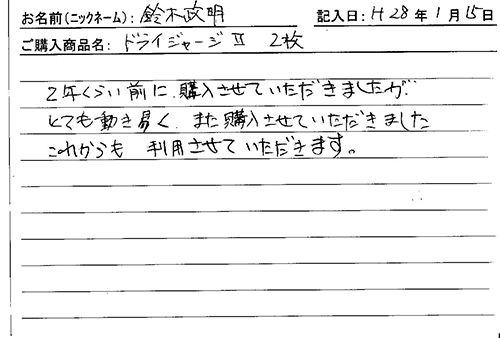 お名前(ニックネーム): 鈴木政明 記入日: H28年1月15日
ご購入商品名: ドライジャージⅡ 2枚
2年くらい前に、購入させていただきましたが
とても動き易く、また購入させていただきました
これからも 利用させていただきます。